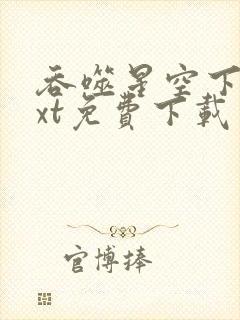 吞噬星空下
xt免費下載
官博捧